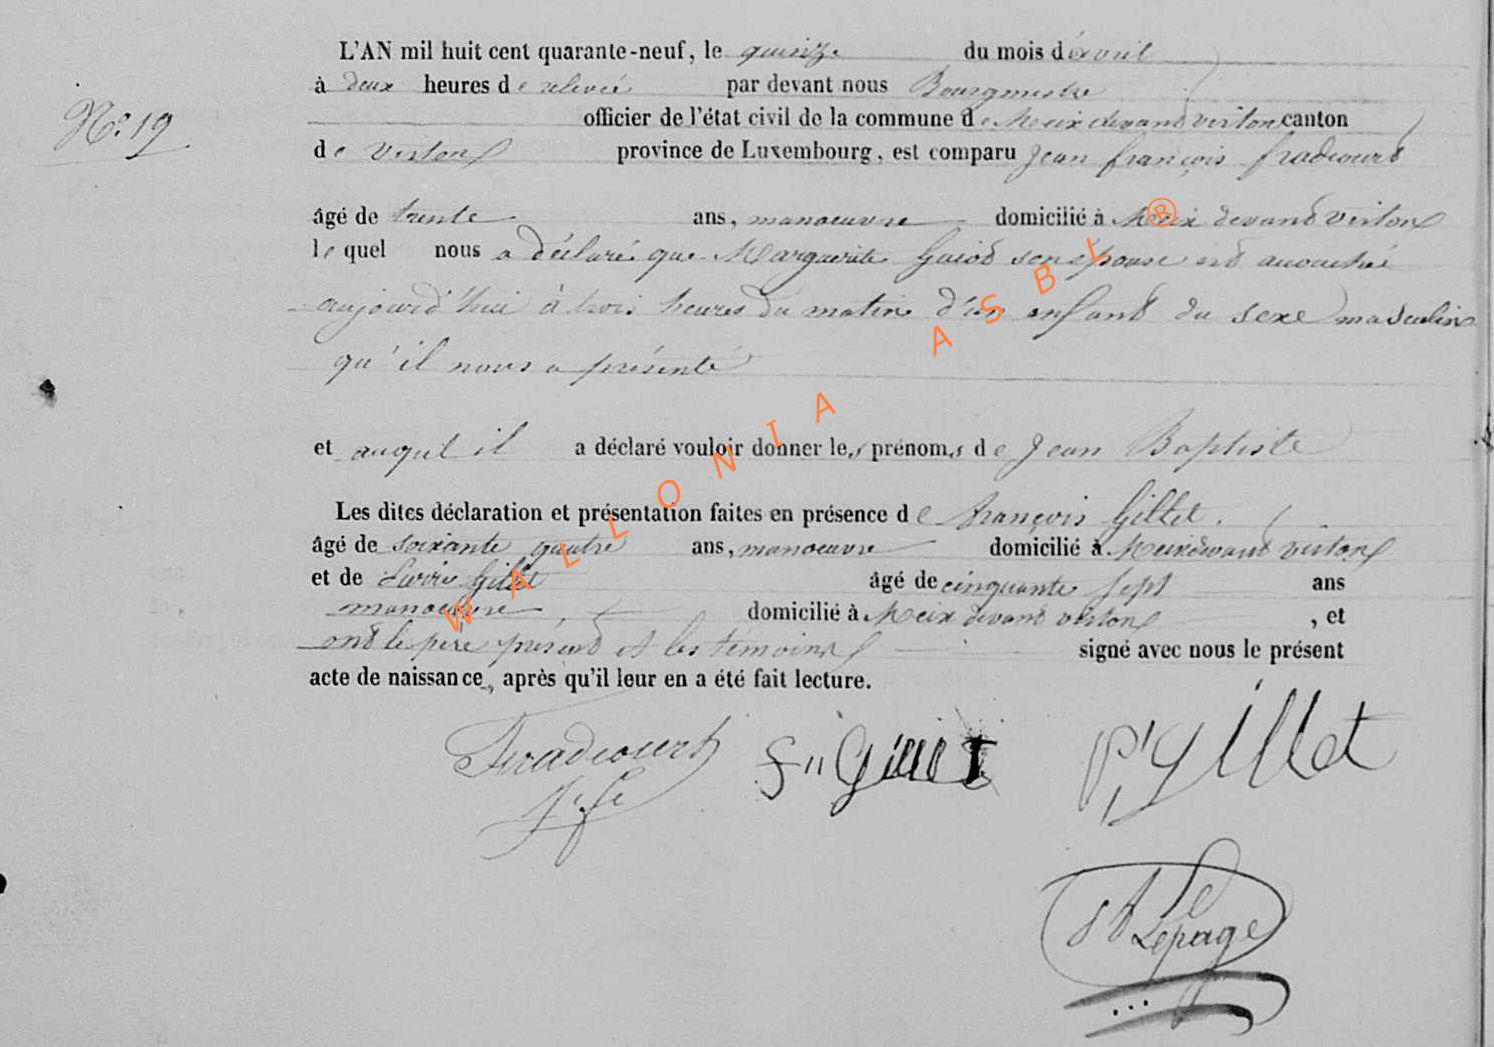 L'AN mil huit cent quarante-neuf, le quinze du mois d'avril
à deux heures de relevée par devant nous Bourgmestre
officier de l'état civil de la commune de Meix devant virton canton
N° 19
de virton province de Luxembourg, est comparu Jean françois fradcourt
âgé de trente ans, manoeuvre domicilié à Meix devant virton
le quel nous a déclaré que Marguerite Guiot son épouse est accouchée
aujourd'hui à trois heures du matin d'un enfant du sexe masculin
qu'il nous a présenté
et auquel il a déclaré vouloir donner les prénoms de Jean Baptiste
Les dites déclaration et présentation faites en présence de françois Gillet.
âgé de soixante quatre ans, manoeuvre domicilié à Meix devant virton
et de Gillet âgé de cinquante sept ans
manoeuvre domicilié à Meix devant virton, et
ont le père présent et les témoins signé avec nous le présent
acte de naissance, après qu'il leur en a été fait lecture.
Fradcourt F" Gillet P, Gillet
J, fs
Lepage
WALLONIA ASBL ®